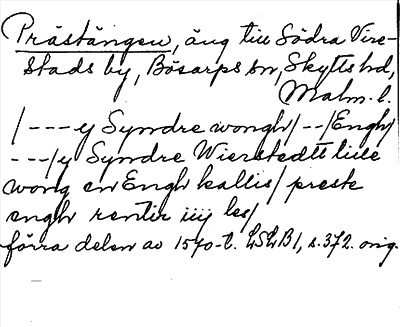 Prästängen, äng till Södra Vire-
stads by, Bösarps sn, Skytts hd,
Malm. l.
/---y Syndre wongh/--/Engh/
---/y Syndre Wierstedtt lille
wong en Engh kallis/ preste
engh rentir iiij les/
förra delen av 1570-t. LSLB1, s.372. orig.